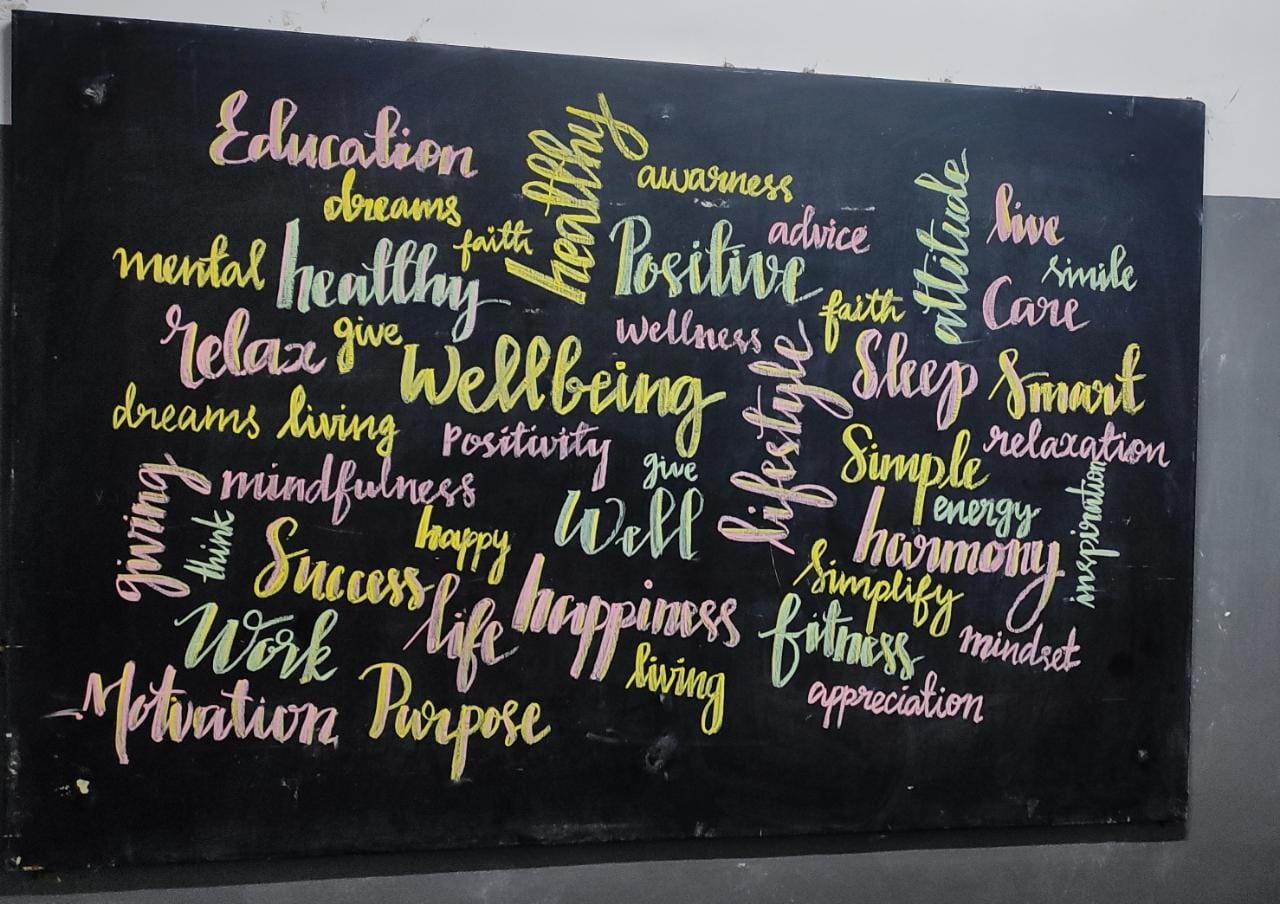 Education
healthy
awarness
dreams
faith
advice
attitude
live
mental healthy
Positive
smile
faith
Care
relax give
wellness
Wellbeing
lifestyle
Sleep Smart
dreams living
Positivity
Simple
relaxation
giving
mindfulness
give
energy
inspiration
think
happy
Well
harmony
Success
Simplify
Work
life
happiness
fitness
mindset
living
appreciation
Motivation Purpose